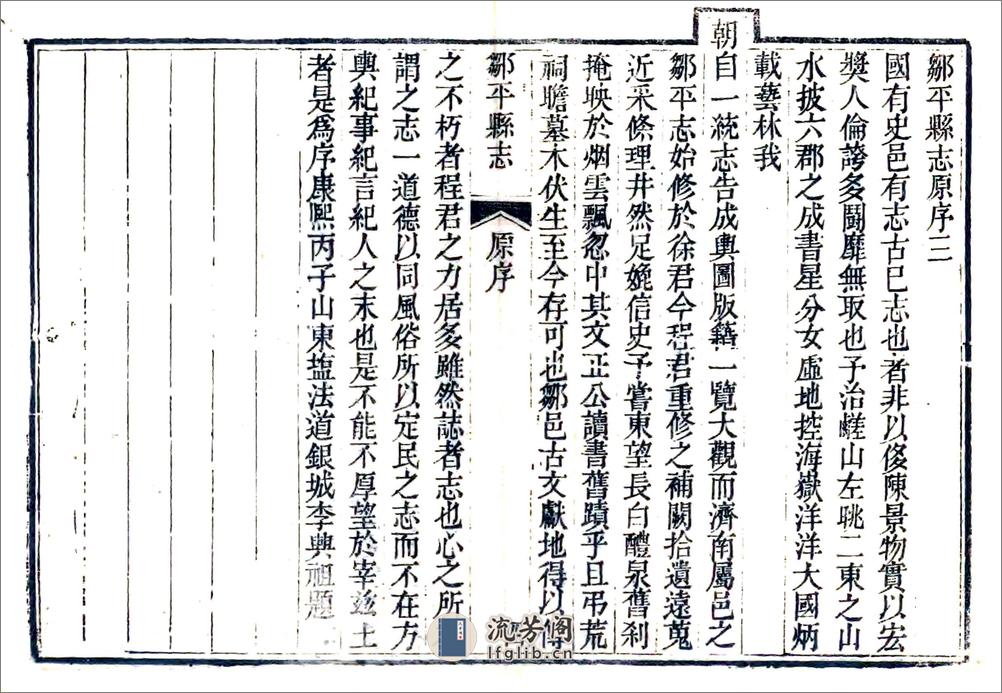 鄒平縣志原序三
國有史邑有志古已志也者非以侈陳景物實以宏
獎人倫誇多鬭靡無取也予治鹺山左眺二東之山
水披六郡之成書星分女虛地控海嶽洋洋大國炳
載藝林我
朝自一統志告成輿圖版籍一覽大觀而濟南屬邑之
鄒平志始修於徐君今程君重修之補闕拾遺遠蒐
近采條理井然足娩信史予嘗東望長白醴泉舊刹
掩映於烟雲飄忽中其文正公讀書舊蹟乎且弔荒
祠瞻墓木伏生至今存可也鄒邑古文獻地得以傳
鄒平縣志
原序
之不朽者程君之力居多雖然誌者志也心之所
謂之志一道德以同風俗所以定民之志而不在方
輿紀事紀言紀人之末也是不能不厚望於宰兹土
者是爲序康熙丙子山東塩法道銀城李興祖題
流芳阁
lfglib.cn